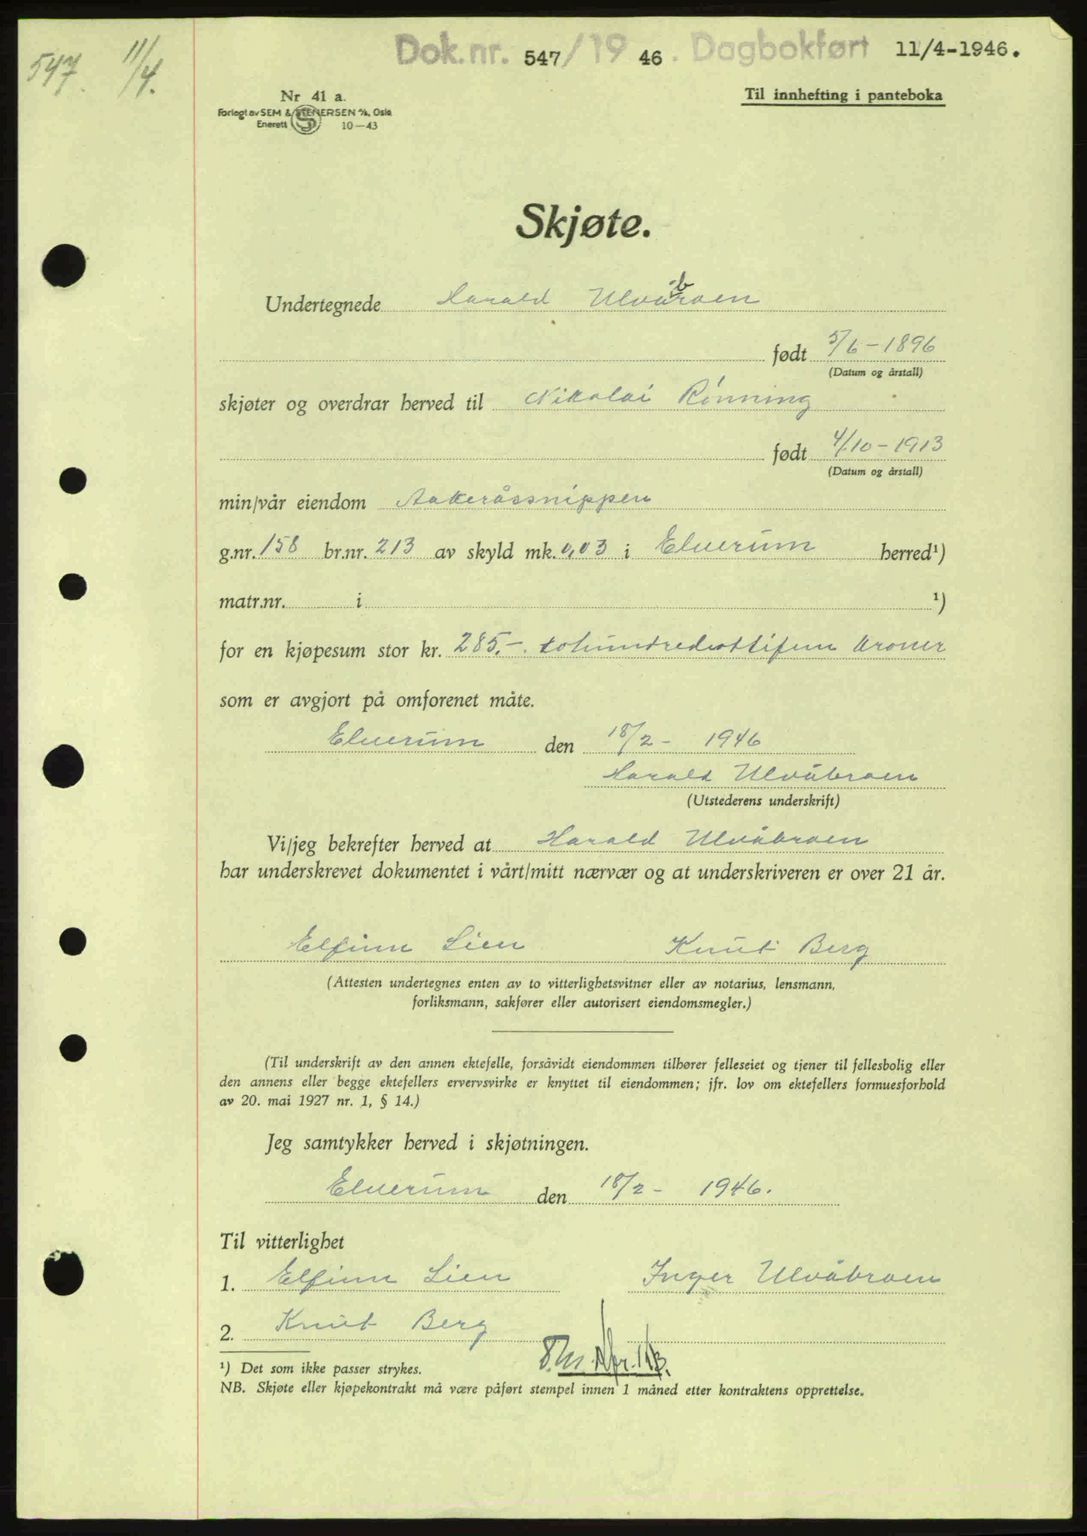 547. 11/4.
Dok.nr. 547/19 46. Dagbokført 11/4-1946.
Nr 41 a.
Forlagt av SEM & STENERSEN A/S, Oslo
Enerett S 10-43
Til innhefting i panteboka
Skjøte.
Undertegnede Harald Ulvåbroen
født 5/6-1896
(Datum og årstall)
skjøter og overdrar herved til Nikolai Rønning
født 4/10-1913
(Datum og årstall)
min/vår eiendom Aakeråssnippen
g.nr. 158 br.nr. 213 av skyld mk. 0,03 i Elverum herred¹)
matr.nr. i ¹)
for en kjøpesum stor kr. 285.-. tohundredeottifem kroner
som er avgjort på omforenet måte.
Elverum den 18/2- 1946
Harald Ulvåbroen
(Utstederens underskrift)
Vi/jeg bekrefter herved at Harald Ulvåbroen
har underskrevet dokumentet i vårt/mitt nærvær og at underskriveren er over 21 år.
Elfinn Lien Knut Berg
(Attesten undertegnes enten av to vitterlighetsvitner eller av notarius, lensmann,
forliksmann, sakfører eller autorisert eiendomsmegler.)
(Til underskrift av den annen ektefelle, forsåvidt eiendommen tilhører felleseiet og tjener til fellesbolig eller
den annens eller begge ektefellers ervervsvirke er knyttet til eiendommen; jfr. lov om ektefellers formuesforhold
av 20. mai 1927 nr. 1, § 14.)
Jeg samtykker herved i skjøtningen.
Elverum den 18/2- 1946.
Til vitterlighet
1. Elfinn Lien Inger Ulvåbroen
2. Knut Berg
¹) Det som ikke passer strykes.
NB. Skjøte eller kjøpekontrakt må være påført stempel innen 1 måned etter kontraktens opprettelse.